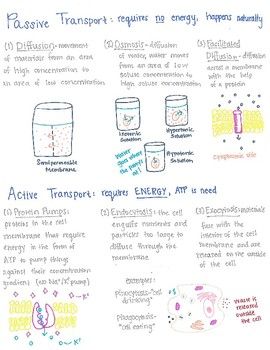 Passive Transport: requires no energy, happens naturally
(1) Diffusion - movement
of materials from an area
of high concentration to
an area of low concentration
Semipermeable
Membrane
(2) Osmosis - diffusion
of water, water moves
from an area of low
solute concentration to
high solute concentration
Isotonic
Solution
Hypertonic
Solution
Hypotonic
Solution
(3) Facilitated
Diffusion - diffusion
across a membrane
with the help
of a protein
Cytoplasmic side
Active Transport: requires ENERGY, ATP is need
(1) Protein Pumps:
proteins in the cell
membrane that require
energy in the form
of ATP to pump things
against their concentration
gradient
(2) Endocytosis: the cell
engulfs nutrients and
particles too large to
diffuse through the
membrane
Examples:
Pinocytosis- "cell
drinking"
Phagocytosis-
"cell eating"
(3) Exocytosis: materials
fuse with the interior
of the cell
membrane and
are released on the
outside of the
cell
Waste is
released
outside the
cell
K+